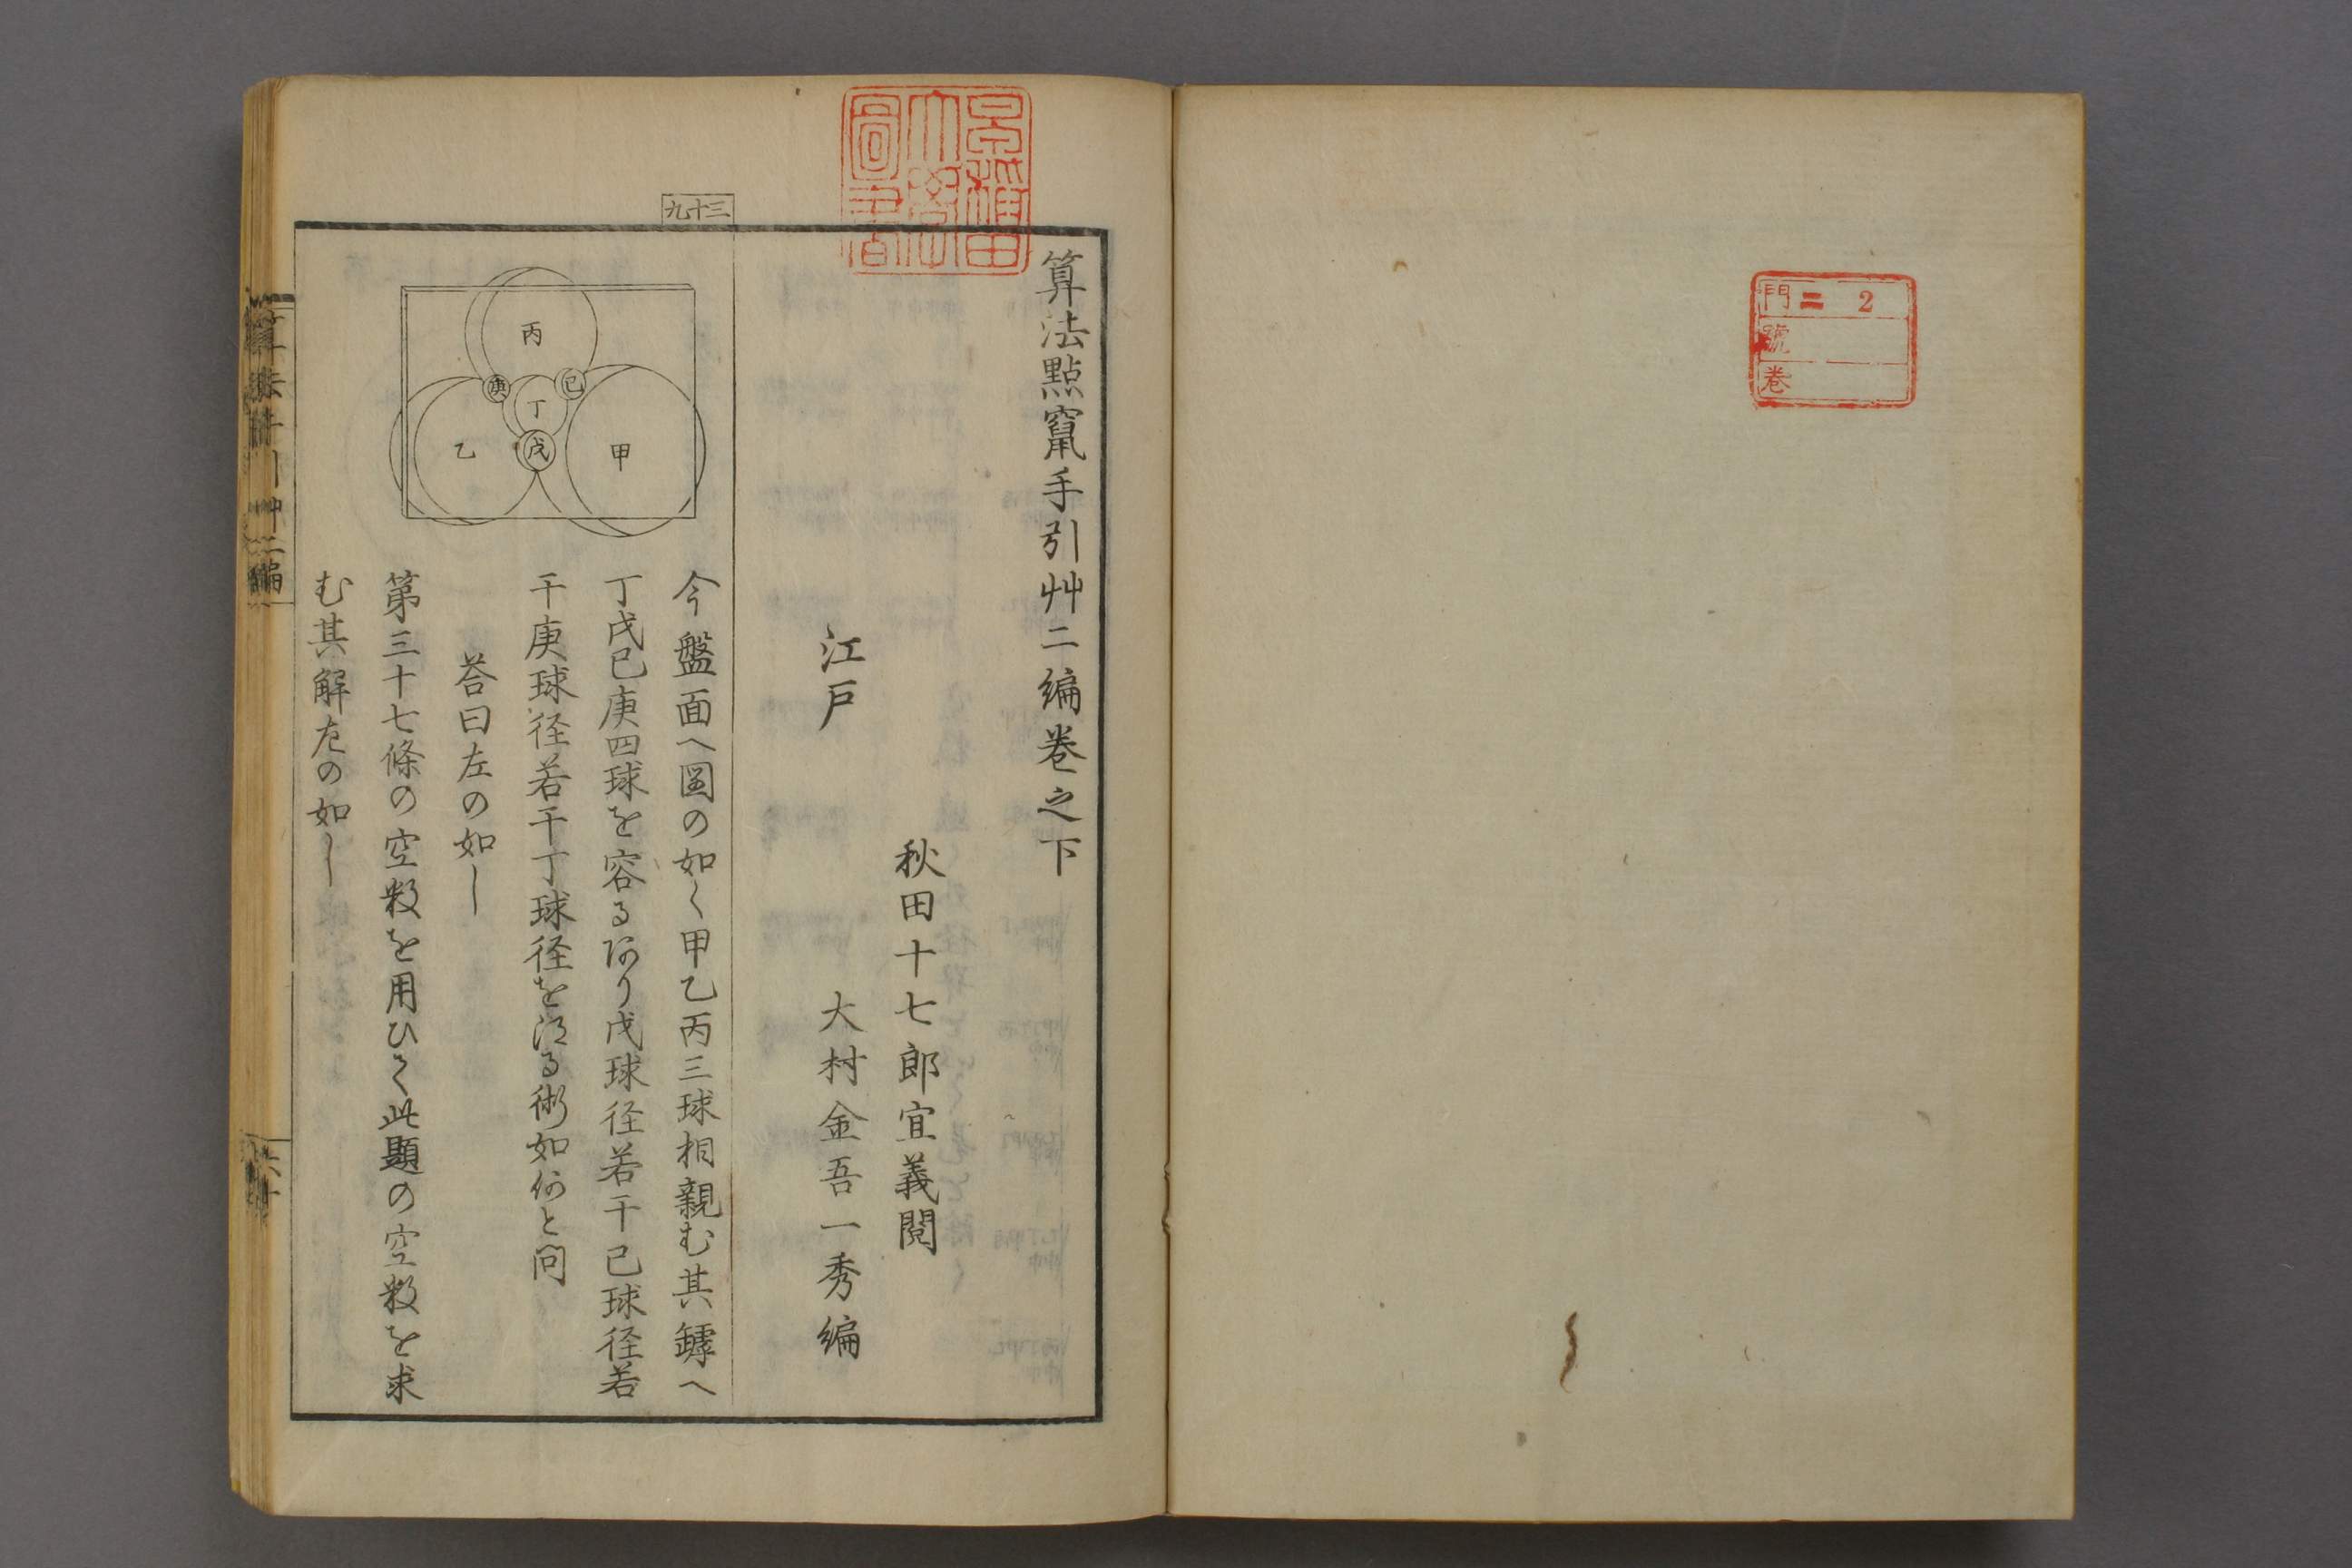 門 二 2
號
卷
早稲田
大學
圖書
算法點竄手引艸二編巻之下
秋田十七郎宜義閲
江戸 大村金吾一秀編
三十九
今盤面へ圖の如く甲乙丙三球相親む其罅へ
丁戊己庚四球を容るあり戊球径若干己球径若
干庚球径若干丁球径を得る術如何と問
答曰左の如し
第三十七條の空数を用ひて此題の空数を求
む其解左の如し
丙
庚
己
丁
戊
乙
甲
算法手引艸二編